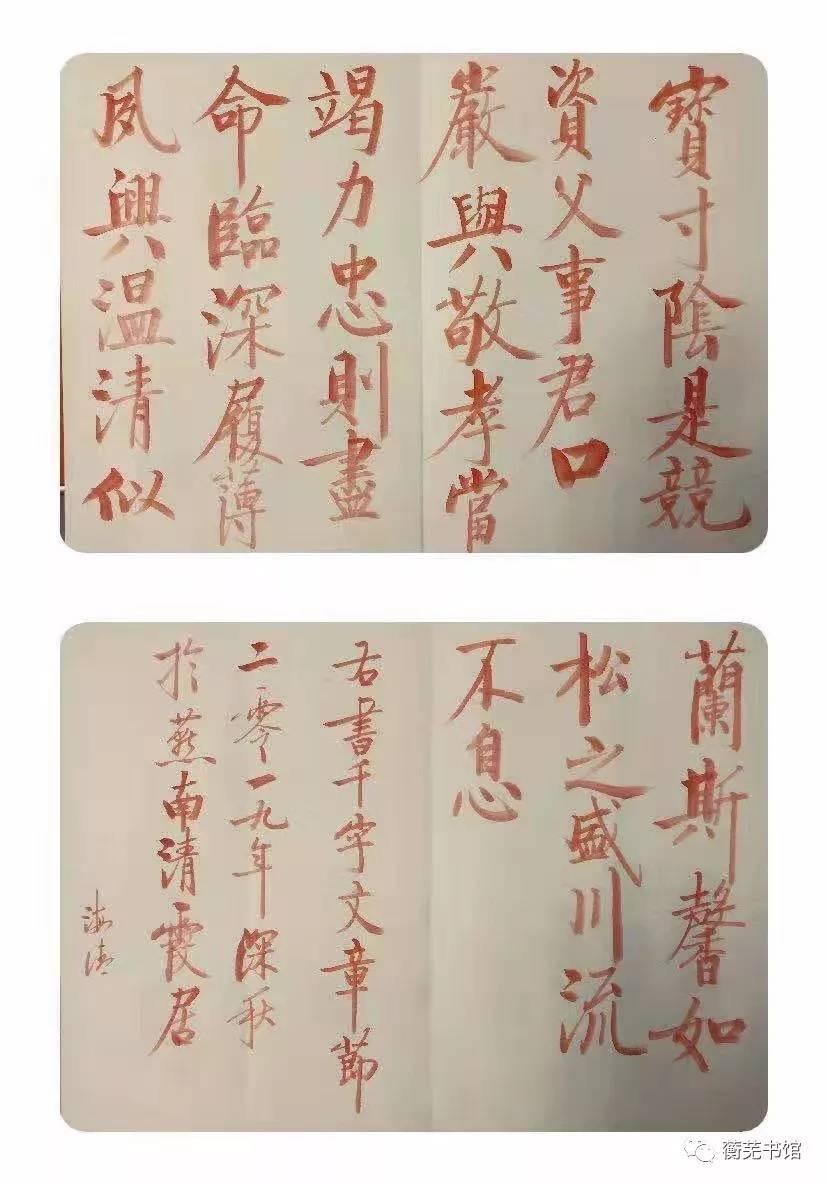 寶寸陰是競
資父事君曰
嚴與敬孝當
竭力忠則盡
命臨深履薄
夙興温凊似
蘭斯馨如
松之盛川流
不息
右書千字文章節
二零一九年深秋
於燕南清霞居
海清
蘅芜书馆